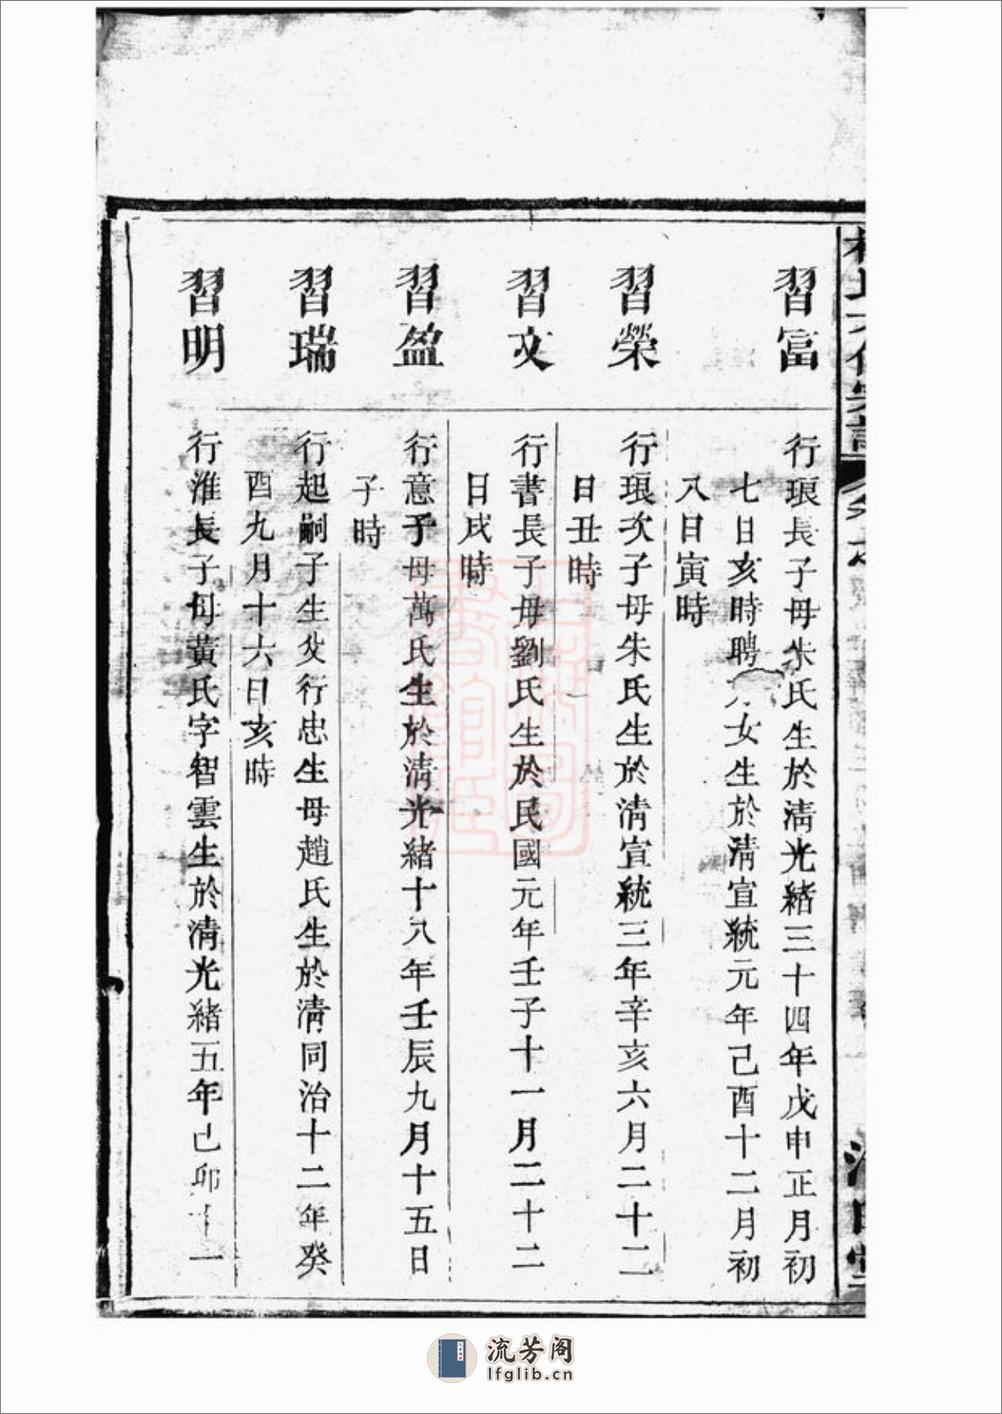 習富
行琅長子母朱氏生於清光緒三十四年戊申正月初
七日亥時聘 女生於清宣統元年己酉十二月初
八日寅時
習榮
行琅次子母朱氏生於清宣統三年辛亥六月二十二
日丑時
習文
行書長子母劉氏生於民國元年壬子十一月二十二
日戌時
習盈
行意子母萬氏生於清光緒十八年壬辰九月十五日
子時
習瑞
行起嗣子生父行忠生母趙氏生於清同治十二年癸
酉九月十六日亥時
習明
行淮長子母黃氏字智雲生於清光緒五年己卯十一
流芳阁
lfglib.cn